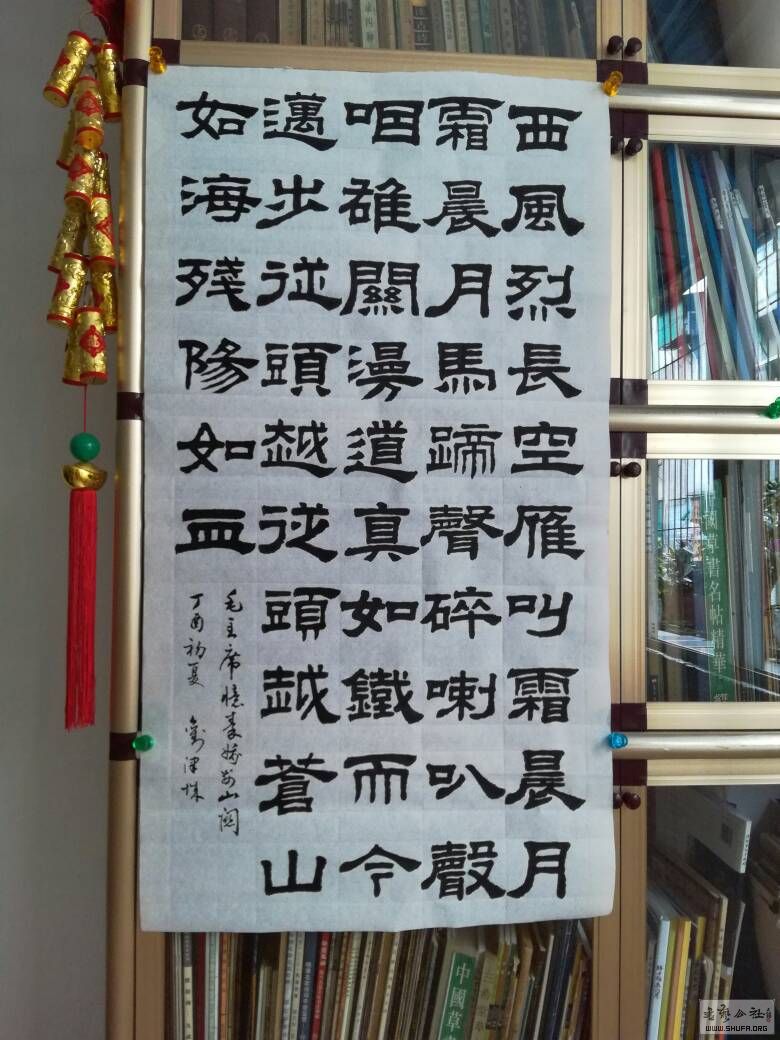 西風烈長空雁叫霜晨月
霜晨月馬蹄聲碎喇叭聲
咽雄關漫道真如鐵而今
邁步從頭越從頭越蒼山
如海殘陽如血
毛主席憶秦娥婁山関
丁酉初夏
中國草書名帖精華
中國草
書藝公社
WWW.SHUFA.ORG